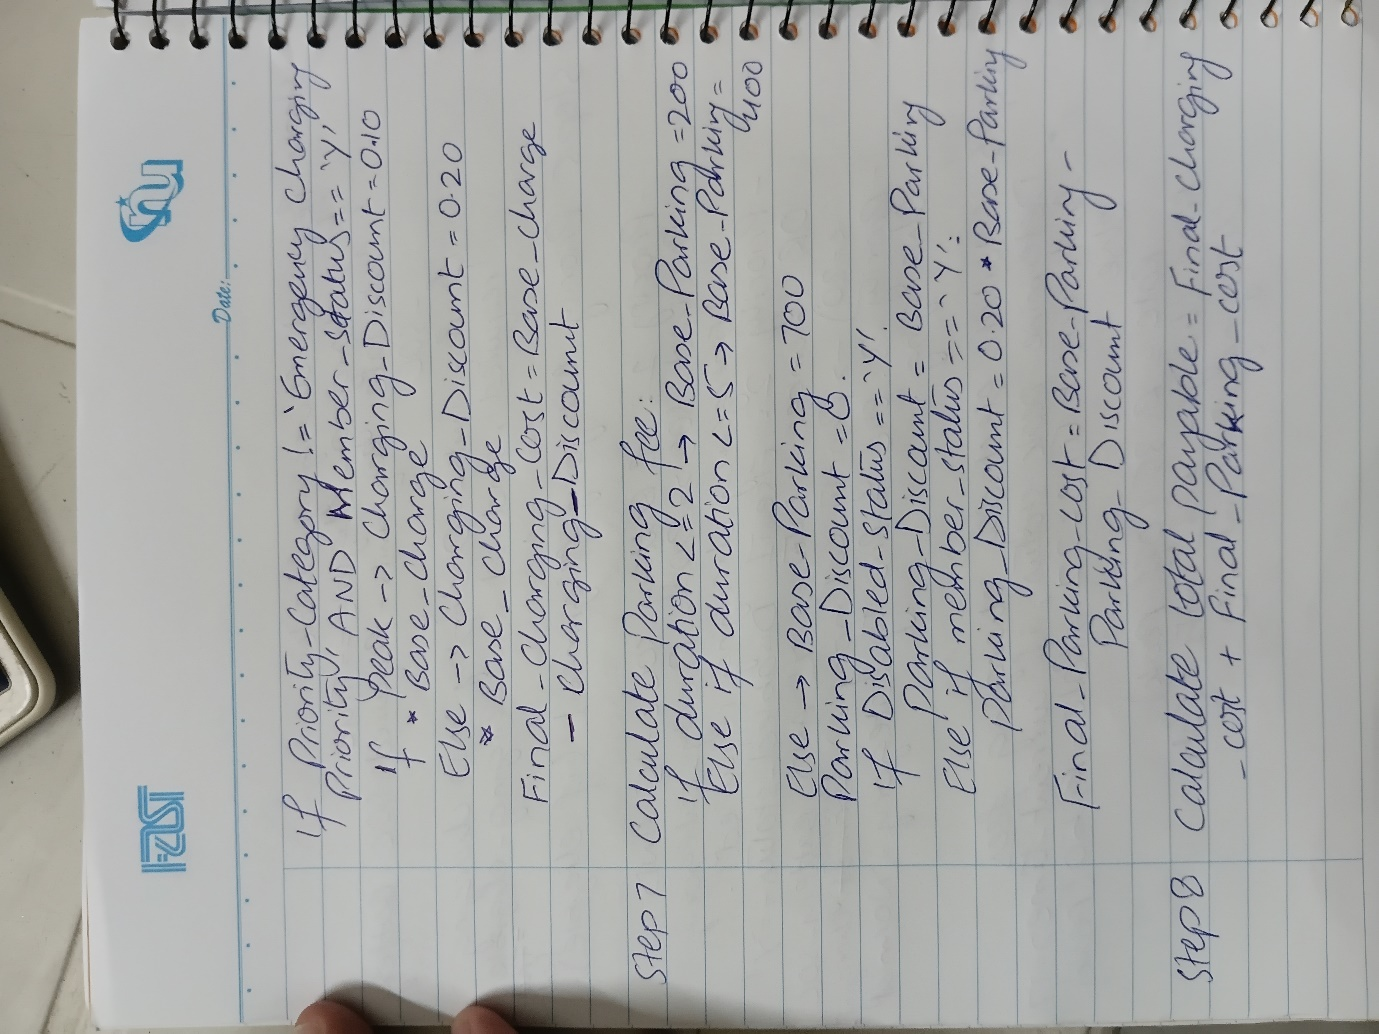 FAST
NU
Date:
If Priority-Category != 'Emergency Charging
Priority' AND Member-Status == 'Y'
If peak -> Charging-Discount = 0.10
* Base-Charge
Else -> Charging-Discount = 0.20
* Base-Charge
Final-Charging-Cost = Base-Charge
- Charging-Discount
Step 7 Calculate Parking fee:
If duration <= 2 -> Base-Parking = 200
Else if duration <= 5 -> Base-Parking =
400
Else -> Base-Parking = 700
Parking-Discount = 0.
If Disabled-Status == 'Y'.
Parking-Discount = Base-Parking
Else if member-status == 'Y':
Parking-Discount = 0.20 * Base-Parking
Final-Parking-Cost = Base-Parking -
Parking-Discount
Step 8 Calculate total payable = Final-Charging
-cost + Final-Parking-cost